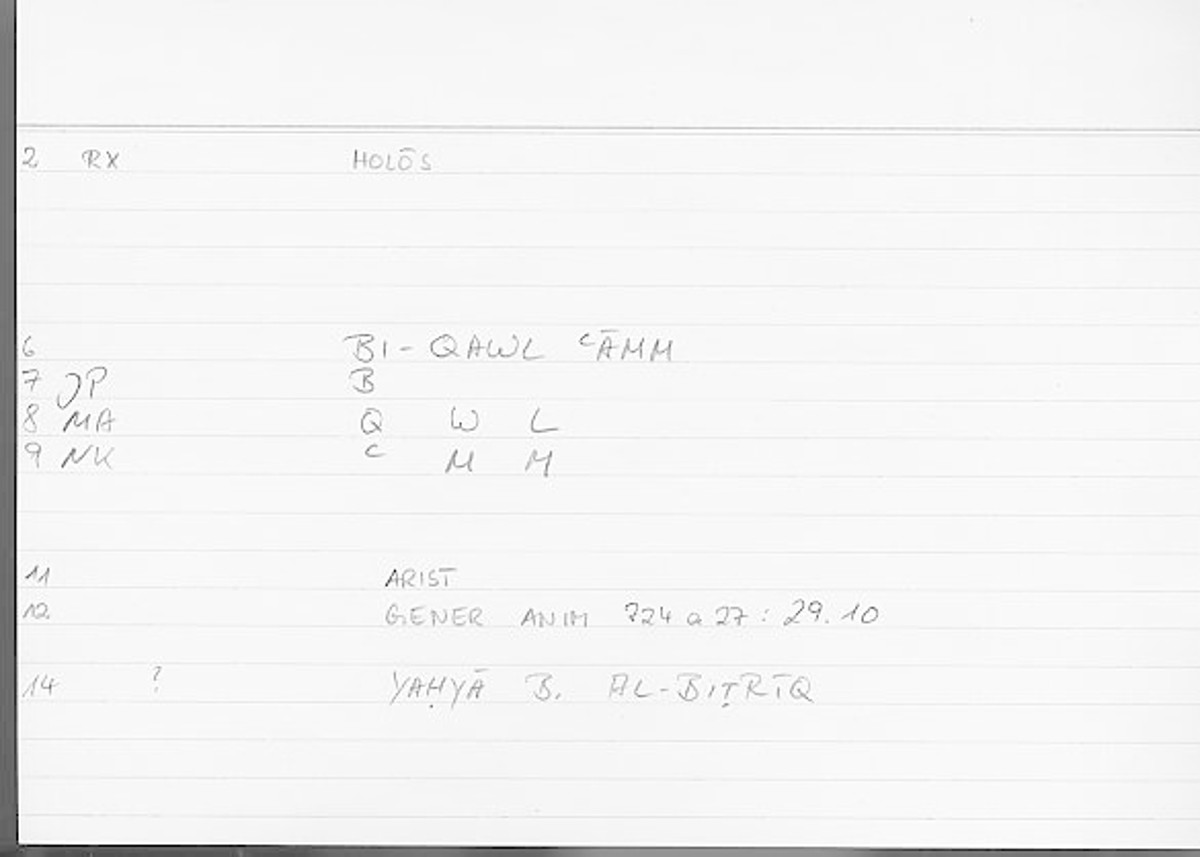 2 RX HOLŌS
6 BI- QAWL ᶜĀMM
7 JP B
8 MA Q W L
9 NK ᶜ M M
11 ARIST
12 GENER ANIM 724 a 27 : 29.10
14 ? YAḤYĀ B. AL-BIṬRĪQ